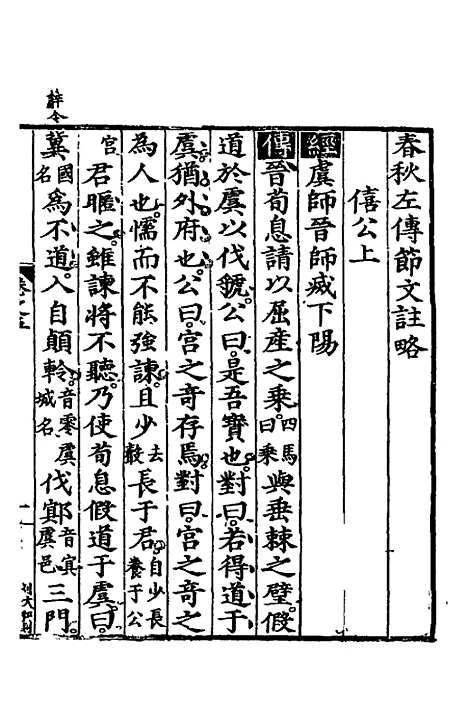 春秋左傳節文註略
僖公上
經虞師晉師滅下陽
傳晉荀息請以屈產之乘四馬曰乘與垂棘之璧假
道於虞以伐虢公曰是吾寶也對曰若得道于
虞猶外府也公曰宮之奇存焉對曰宮之奇之
為人也懦而不能強諫且少去數長于君自少長養于公
宮君暱之雖諫將不聽乃使荀息假道于虞曰
冀國名為不道入自顛軨音零虞城名伐鄍音㝠虞邑三門
辭令